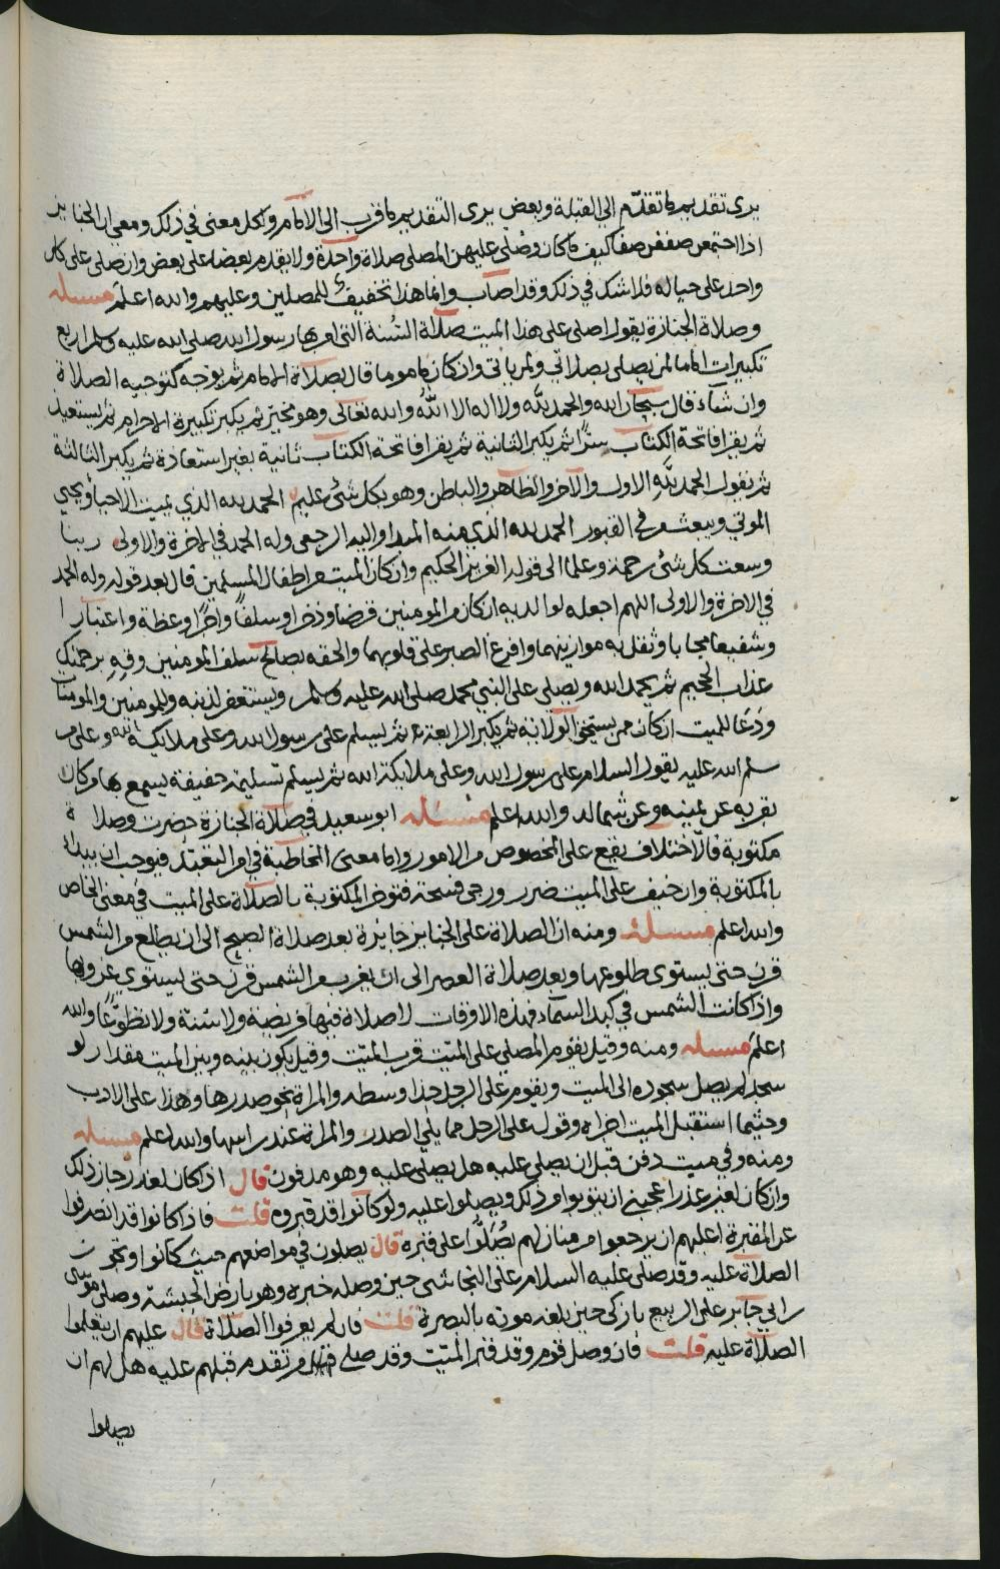 يرى تقديم ما تقدم إلى القبلة وبعض يرى التقديم ما قرب إلى الإمام ولكل معنى في ذلك ومعي ان الجنايز
اذا اجتمعن صففن صفا كيف ما كان وصلى عليهن المصلى صلاة واحدة ولا يقدم بعضا على بعض وان صلى على كل
واحد على حياله فلا شك في ذلك وقد اصاب وانما هذا تخفيف للمصلين وعليهم والله اعلم مسئلة
وصلاة الجنازة يقول اصلى على هذا الميت صلاة السنة التى امر بها رسول الله صلى الله عليه وسلم اربع
تكبيرات اماما لمن يصلى بصلاتي ولمن ياتي وان كان ماموما قال بصلاة الامام ثم يوجه كتوجيه الصلاة
وان شاء قال سبحان الله والحمد لله ولا اله الا الله والله تعالى وهو مخير ثم يكبر تكبيرة الاحرام ثم يستعيذ
ثم يقرا فاتحة الكتاب سرا ثم يكبر الثانية ثم يقرا فاتحة الكتاب ثانية بغير استعاذة ثم يكبر الثالثة
ثم يقول الحمد لله الاول والآخر والظاهر والباطن وهو بكل شئ عليم الحمد لله الذي يميت الاحيا ويحيي
الموتي ويبعث من في القبور الحمد لله الذي منه المبدا واليه الرجعى وله الحمد في الاخرة والاولى ربنا
وسعت كل شئ رحمة وعلما الى قوله العزيز الحكيم وان كان الميت من اطفال المسلمين قال بعد قوله وله الحمد
في الاخرة والاولى اللهم اجعله لوالديه ان كان من المومنين فرضا وذخرا وسلفا واجرا وعظة واعتبارا
وشفيعا مجابا وثقل به موازينهما وافرغ الصبر على قلوبهما والحقه بصالح سلف المومنين وقه برحمتك
عذاب الجحيم ثم يحمد الله ويصلى على النبي محمد صلى الله عليه وسلم ويستغفر لذنبه وللمومنين والمومنات
ودعا للميت ان كان ممن يستحق الولاية ثم يكبر الرابعة ثم يسلم على رسول الله وعلى ملايكة الله وعلى من
سلم الله عليه يقول السلام على رسول الله وعلى ملايكة الله ثم يسلم تسليمة خفيفة يسمع بها من كان
بقربه عن يمينه وعن شماله والله اعلم مسئلة ابو سعيد في صلاة الجنازة حضرت وصلاة
مكتوبة فالاختلاف يقع على المخصوص من الامور واما معنى المخاطبة في امر التعبد فيوجب ان يبدا
بالمكتوبة وان خيف على الميت ضرر ورجى فسحة فتوخر المكتوبة بالصلاة على الميت في معنى الخاص
والله اعلم مسئلة ومنه ان الصلاة على الجنايز جايزة بعد صلاة الصبح الى ان يطلع من الشمس
قرن حتى يستوى طلوعها وبعد صلاة العصر الى ان يغرب من الشمس قرن حتى يستوي غروبها
واذا كانت الشمس في كبد السماء فهذه الاوقات لا صلاة فيها فريضة ولا سنة ولا تطوعا والله
اعلم مسئلة ومنه وقيل يقوم المصلي على الميت قرب الميت وقيل يكون بينه وبين الميت مقدار لو
سجد لم يصل سجوده الى الميت ويقوم على الرجل حذا وسطه والمراة نحو صدرها وهذا على الادب
وحيثما استقبل الميت اجزاه وقول على الرجل مما يلي الصدر والمراة عند راسها والله اعلم مسئلة
ومنه وفي ميت دفن قبل ان يصلى عليه هل يصلى عليه وهو مدفون قال اذا كان لعذر جاز ذلك
وان كان لغير عذر اعجبني ان يتوبوا من ذلك ويصلوا عليه ولو كانوا قد قبروه قلت فاذا كانوا قد انصرفوا
عن المقبرة اعليهم ان يرجعوا من منازلهم يصلوا على قبره قال يصلون في مواضعهم حيث كانوا
الصلاة عليه وقد صلى عليه السلام على النجاشي حين وصله خبره وهو بارض الحبشة وصلى موسى
بن ابي جابر على الربيع بازكى حين بلغه موته بالبصرة قلت فان لم يعرفوا الصلاة قال عليهم ان يتعلموا
الصلاة عليه قلت فان وصل قوم وقد قبر الميت وقد صلى من تقدم قبلهم عليه هل لهم ان
يصلوا